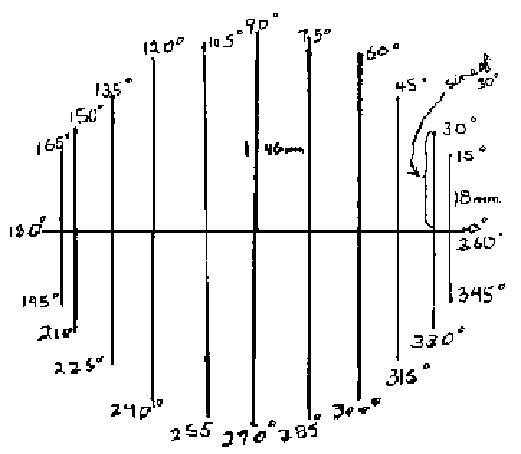 90°
105°
75°
120°
60°
135°
45°
sine of
30°
150°
30°
165°
46mm
15°
18mm.
180°
0°
360°
195°
345°
210°
330°
225°
315°
240°
300°
255
270°
285°